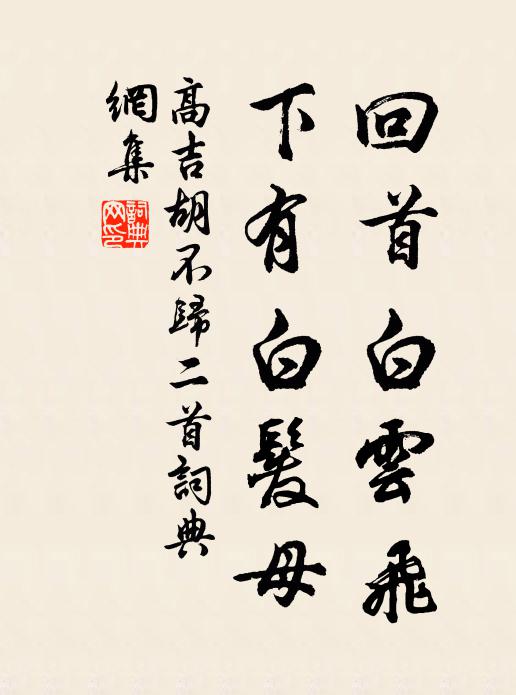 回首白雲飛
下有白髮母
高吉胡不歸二首詞典
網集
詞典網印